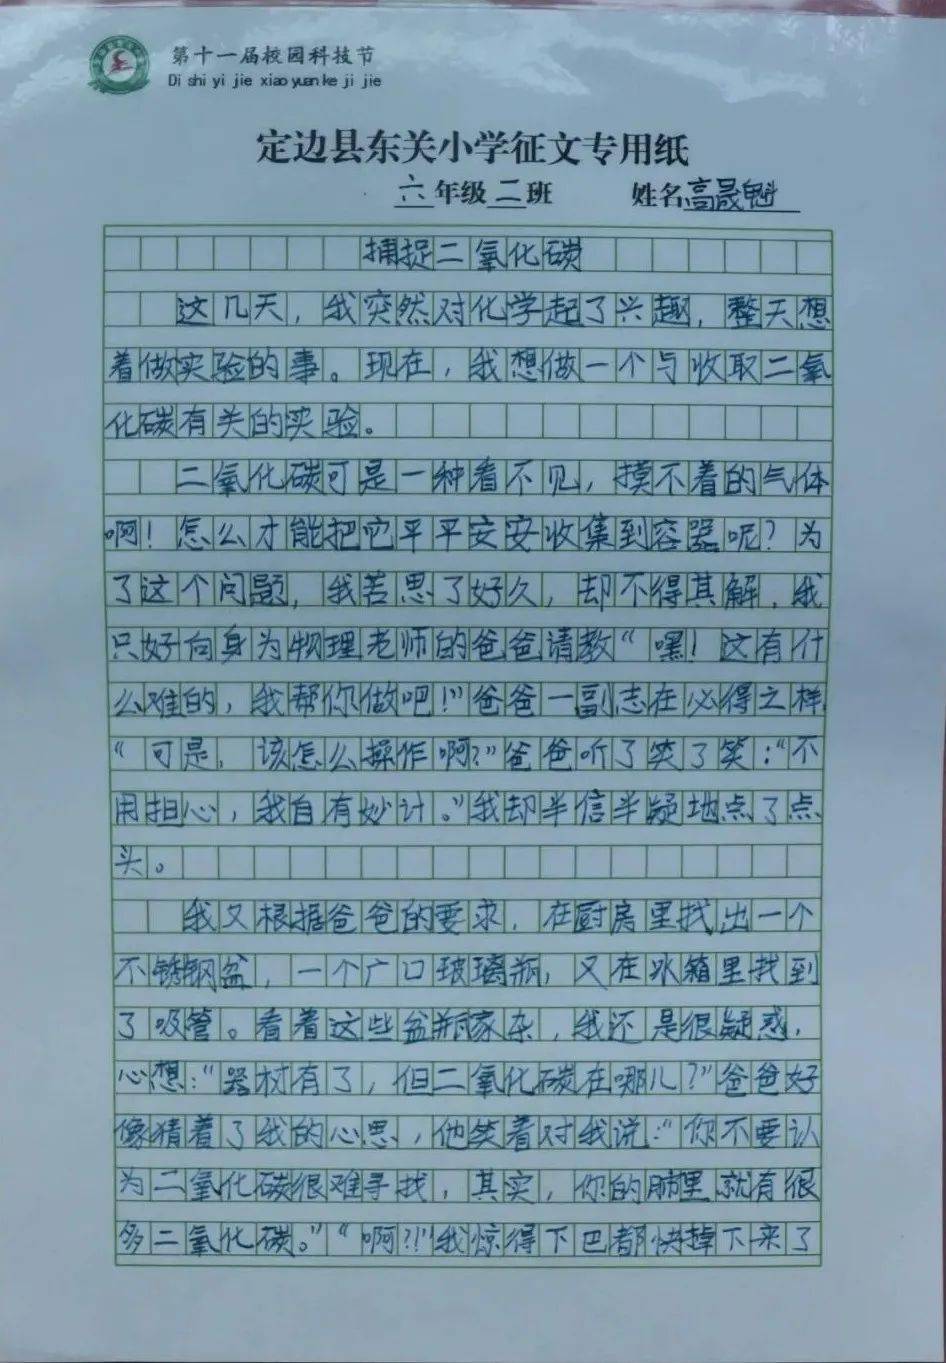 第十一届校园科技节
Di shi yi jie xiao yuan ke ji jie
定边县东关小学征文专用纸
六年级二班 姓名高晟魁
捕捉二氧化碳
这几天，我突然对化学起了兴趣，整天想
着做实验的事。现在，我想做一个与收取二氧
化碳有关的实验。
二氧化碳可是一种看不见，摸不着的气体
啊！怎么才能把它平平安安收集到容器呢？为
了这个问题，我苦思了好久，却不得其解，我
只好向身为物理老师的爸爸请教“嘿！这有什
么难的，我帮你做吧！”爸爸一副志在必得之样，
“可是，该怎么操作啊？”爸爸听了笑了笑：“不
用担心，我自有妙计。”我却半信半疑地点了点
头。
我又根据爸爸的要求，在厨房里找出一个
不锈钢盆，一个广口玻璃瓶，又在冰箱里找到
了吸管。看着这些盆瓶家杂，我还是很疑惑，
心想：“器材有了，但二氧化碳在哪儿？”爸爸好
像猜着了我的心思，他笑着对我说：“你不要认
为二氧化碳很难寻找，其实，你的肺里就有很
多二氧化碳。”“啊？！”我惊得下巴都快掉下来了